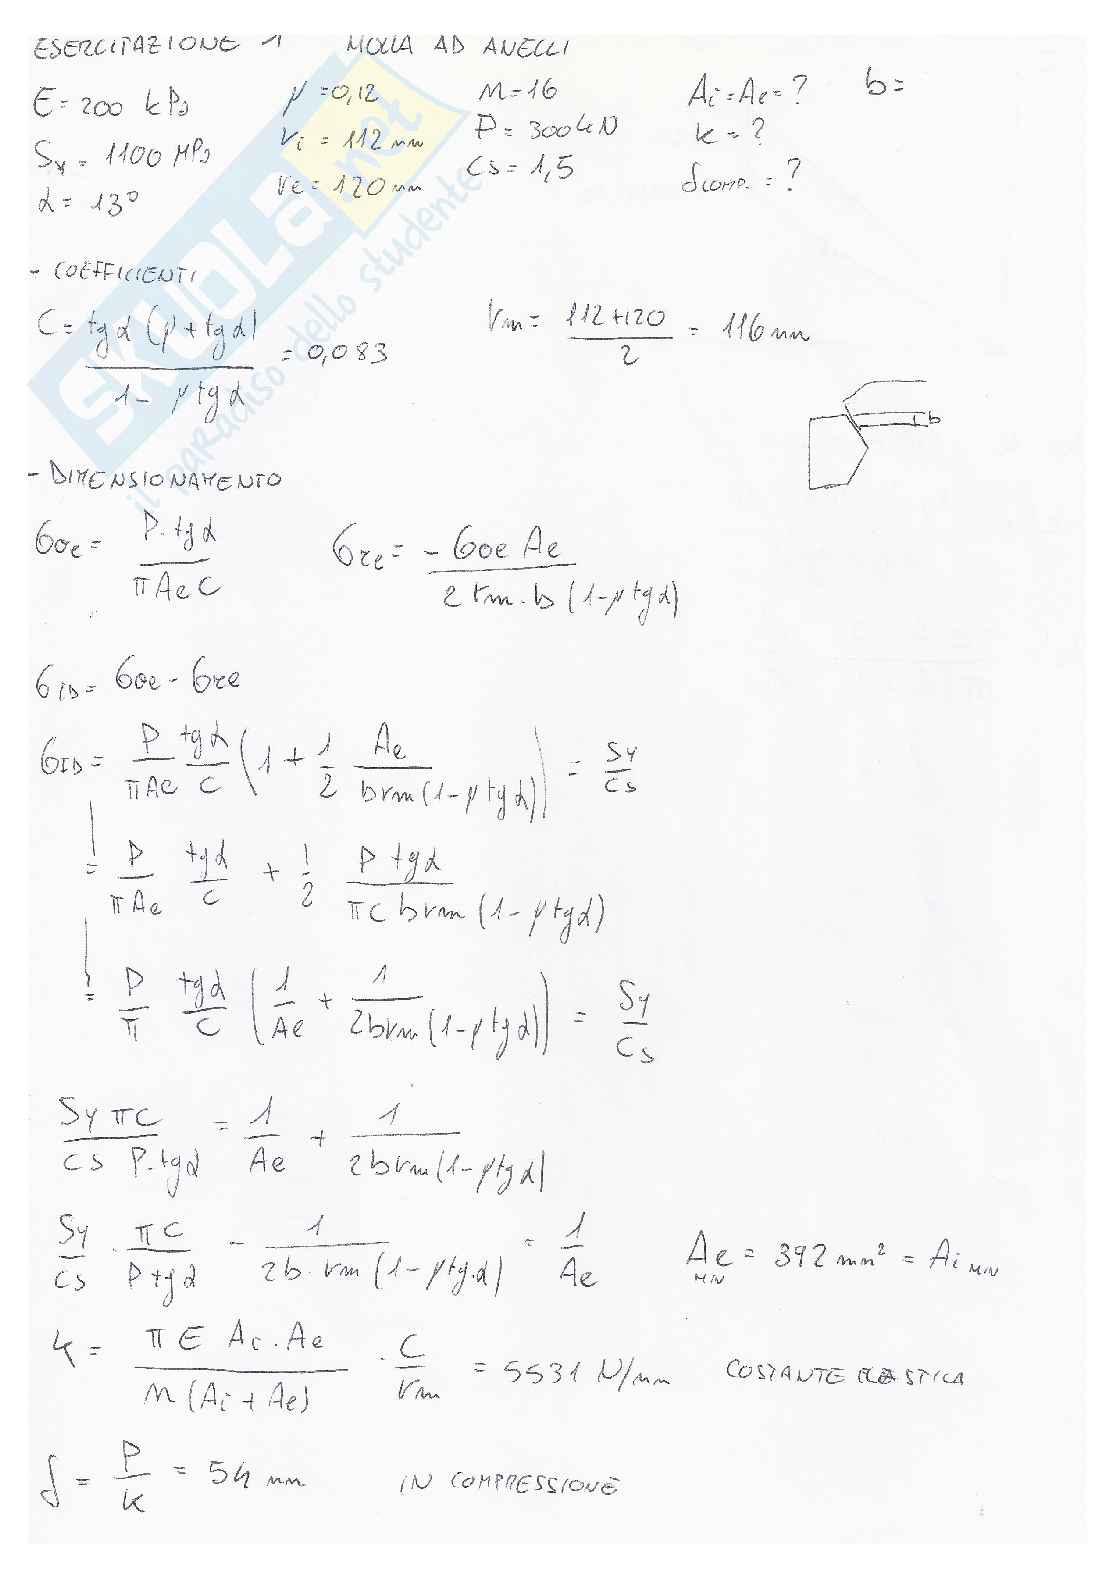 ESERCITAZIONE 1 MOLLA AD ANELLI
E = 200 kPa μ = 0,12 n = 16 Ai = Ae = ? b =
Sy = 1100 MPa ri = 112 mm P = 300 kN k = ?
α = 13° re = 120 mm CS = 1,5 δCOMP. = ?
SKUOLA.net
il paradiso dello studente
- COEFFICIENTI
C = tg α (μ + tg α) / (1 - μ tg α) = 0,083 rm = (112 + 120) / 2 = 116 mm
b
- DIMENSIONAMENTO
σσe = P · tg α / (π Ae C) σre = - σσe Ae / (2 rm · b (1 - μ tg α))
σID = σσe - σre
σID = P / (π Ae) tg α / C (1 + 1/2 Ae / (b rm (1 - μ tg α))) = Sy / CS
= P / (π Ae) tg α / C + 1/2 P tg α / (π C b rm (1 - μ tg α))
= P / π tg α / C (1 / Ae + 1 / (2 b rm (1 - μ tg α))) = Sy / CS
Sy π C / (CS P · tg α) = 1 / Ae + 1 / (2 b rm (1 - μ tg α))
Sy / CS · π C / (P tg α) - 1 / (2 b · rm (1 - μ tg α)) = 1 / Ae Ae MIN = 392 mm² = Ai MIN
k = π E Ai · Ae / (n (Ai + Ae)) · C / rm = 5531 N/mm COSTANTE ELASTICA
δ = P / k = 54 mm IN COMPRESSIONE